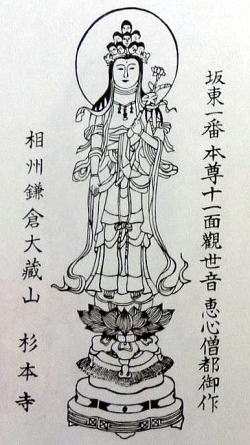 坂東一番 本尊十一面觀世音 惠心僧都御作
相州鎌倉大藏山 杉本寺